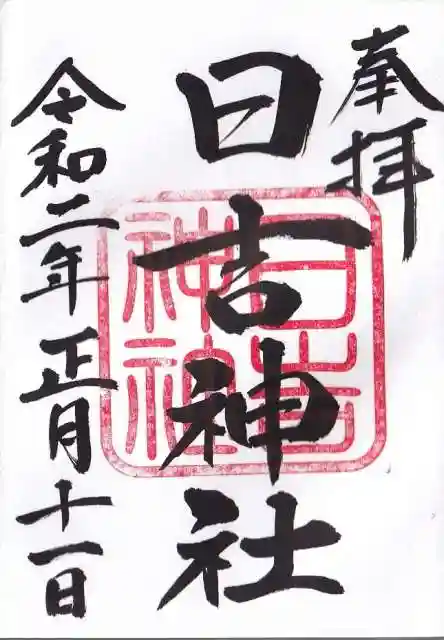 奉拝
日吉神社
日吉
神社
令和二年正月十一日